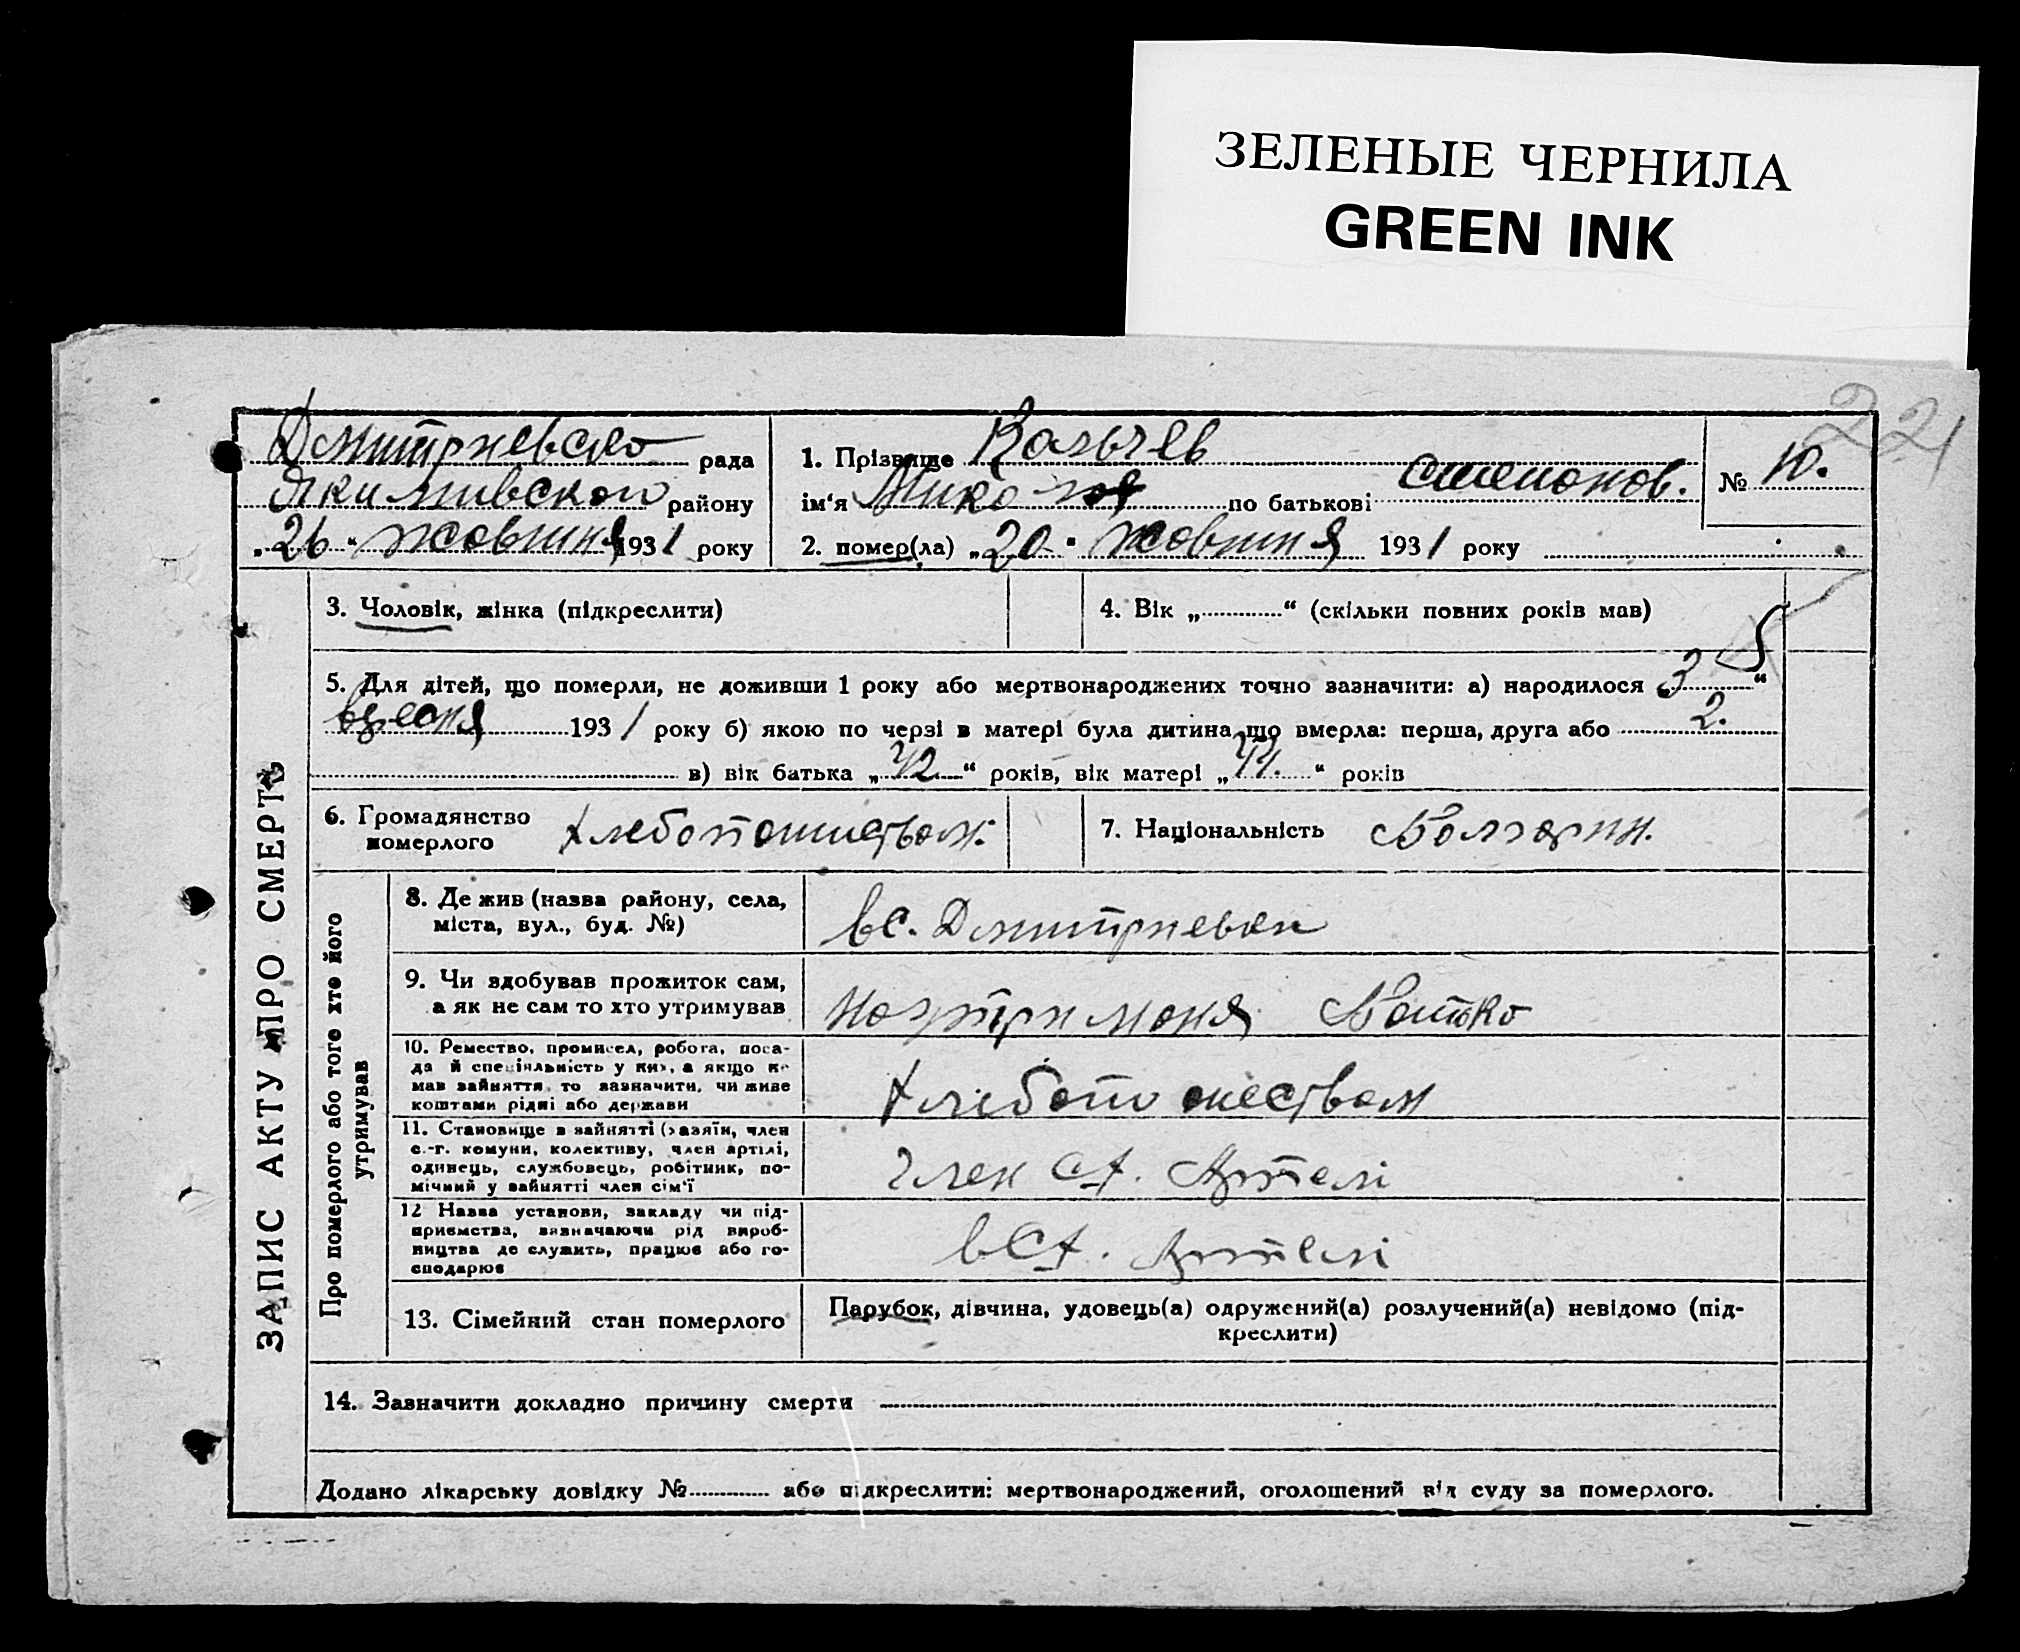 ЗЕЛЕНЫЕ ЧЕРНИЛА
GREEN INK
221
Дмитриевско рада
Якимивского району
„26“ жовтня 1931 року
1. Прізвище Калычев
ім‘я Микола по батькові Степонов.
№ 10.
2. помер(ла) „20“ жовтня 1931 року
ЗАПИС АКТУ ПРО СМЕРТЬ
3. Чоловік, жінка (підкреслити)
4. Вік „ “ (скільки повних років мав)
5. Для дітей, що померли, не доживши 1 року або мертвонароджених точно зазначити: а) народилося 3 “
вресня 1931 року б) якою по черзі в матері була дитина, що вмерла: перша, друга або 2.
в) вік батька „42“ років, вік матері „41.“ років
6. Громадянство
померлого
7. Національність Болгарин.
Про померлого або того хто його
утримував
8. Де жив (назва району, села,
міста, вул., буд. №)
вс. Дмитриевки
9. Чи здобував прожиток сам,
а як не сам то хто утримував
на утриманя Батько
10. Ремество, промисел, робота, поса-
да й спеціяльність у них, а якщо не
мав зайняття, то зазначити, чи живе
коштами рідні або держави
11. Становище в зайнятті (хазяїн, член
с.-г. комуни, колективу, член артілі,
одинець, службовець, робітник, по-
мічний у зайнятті член сім‘ї
Член СХ. Артелі
12 Назва установи, закладу чи під-
приємства, зазначаючи рід вироб-
ництва де служить, працює або го-
сподарює
вСХ. Артелі
13. Сімейний стан померлого
Парубок, дівчина, удовець(а) одружений(а) розлучений(а) невідомо (під-
креслити)
14. Зазначити докладно причину смерти
Додано лікарську довідку № або підкреслити: мертвонароджений, оголошений від суду за померлого.